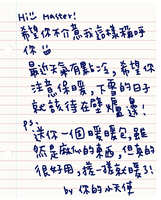 Hi!! Master!
希望你不介意我這樣稱呼
你
最近天氣有點冷，希望你
注意保暖，下雨的日子
就該待在壁爐邊！
ps.
送你一個暖暖包，雖
然是麻瓜的東西，但真的
很好用，搓一搓就暖了！
by 你的小天使